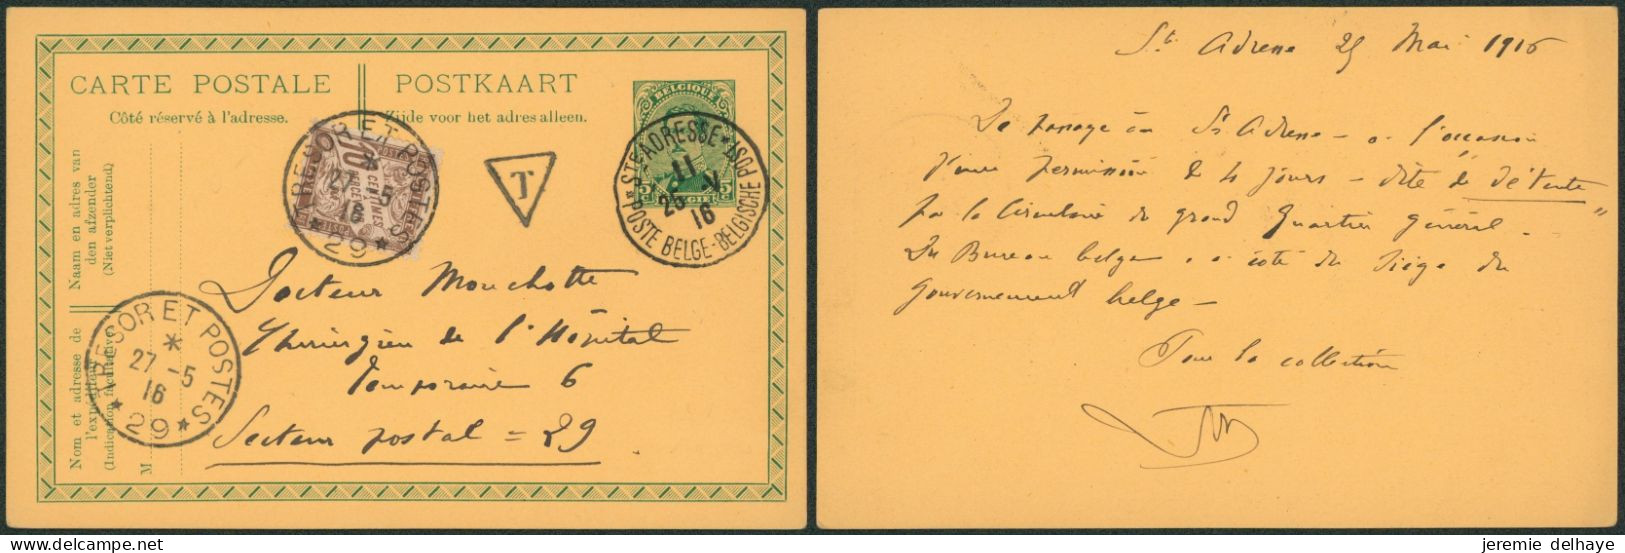 CARTE POSTALE
POSTKAART
Côté réservé à l'adresse.
Zijde voor het adres alleen.
BELGIQUE
5c
BELGIE
STE ADRESSE
POSTE BELGE-BELGISCHE POST
11
25 -V
16
T
10 CENTIMES
TRESOR ET POSTES
*
27 -5
16
* 29 *
TRESOR ET POSTES
*
27 -5
16
* 29 *
Naam en adres van
den afzender
(Niet verplichtend)
Nom et adresse de
l'expéditeur
(Indication facultative)
M
Docteur Mouchotte
Chirurgien de l'Hôpital
temporaire 6
Secteur postal = 29
St Adresse 25 Mai 1916
De passage à St Adresse - à l'occasion
d'une permission de 4 jours - dite de détente
par la Circulaire du grand Quartier général -
Du Bureau belge à côté du Siège du
gouvernement belge -
Pour la collection
jeremie delhaye